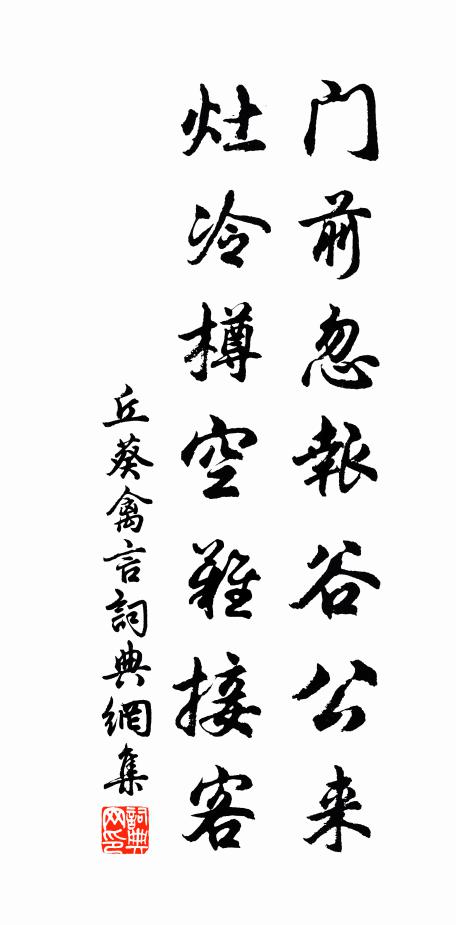 门前忽報谷公来
灶冷樽空難接客
丘葵禽言詞典網集
詞典网印